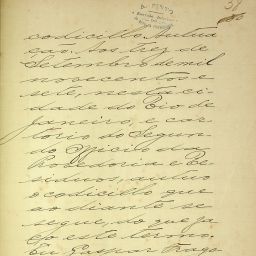 38
codicillo. Autua
çao. Aos trez de
Setembro de mil
novecentos e
sete, nesta ci
dade do Rio de
Janeiro, e car
torio do Segun
do Officio da
Provedoria e Re
siduos, autuo
o codicillo que
ao diante se
segue, do que fa
ço este termo.
Eu Gaspar Frago